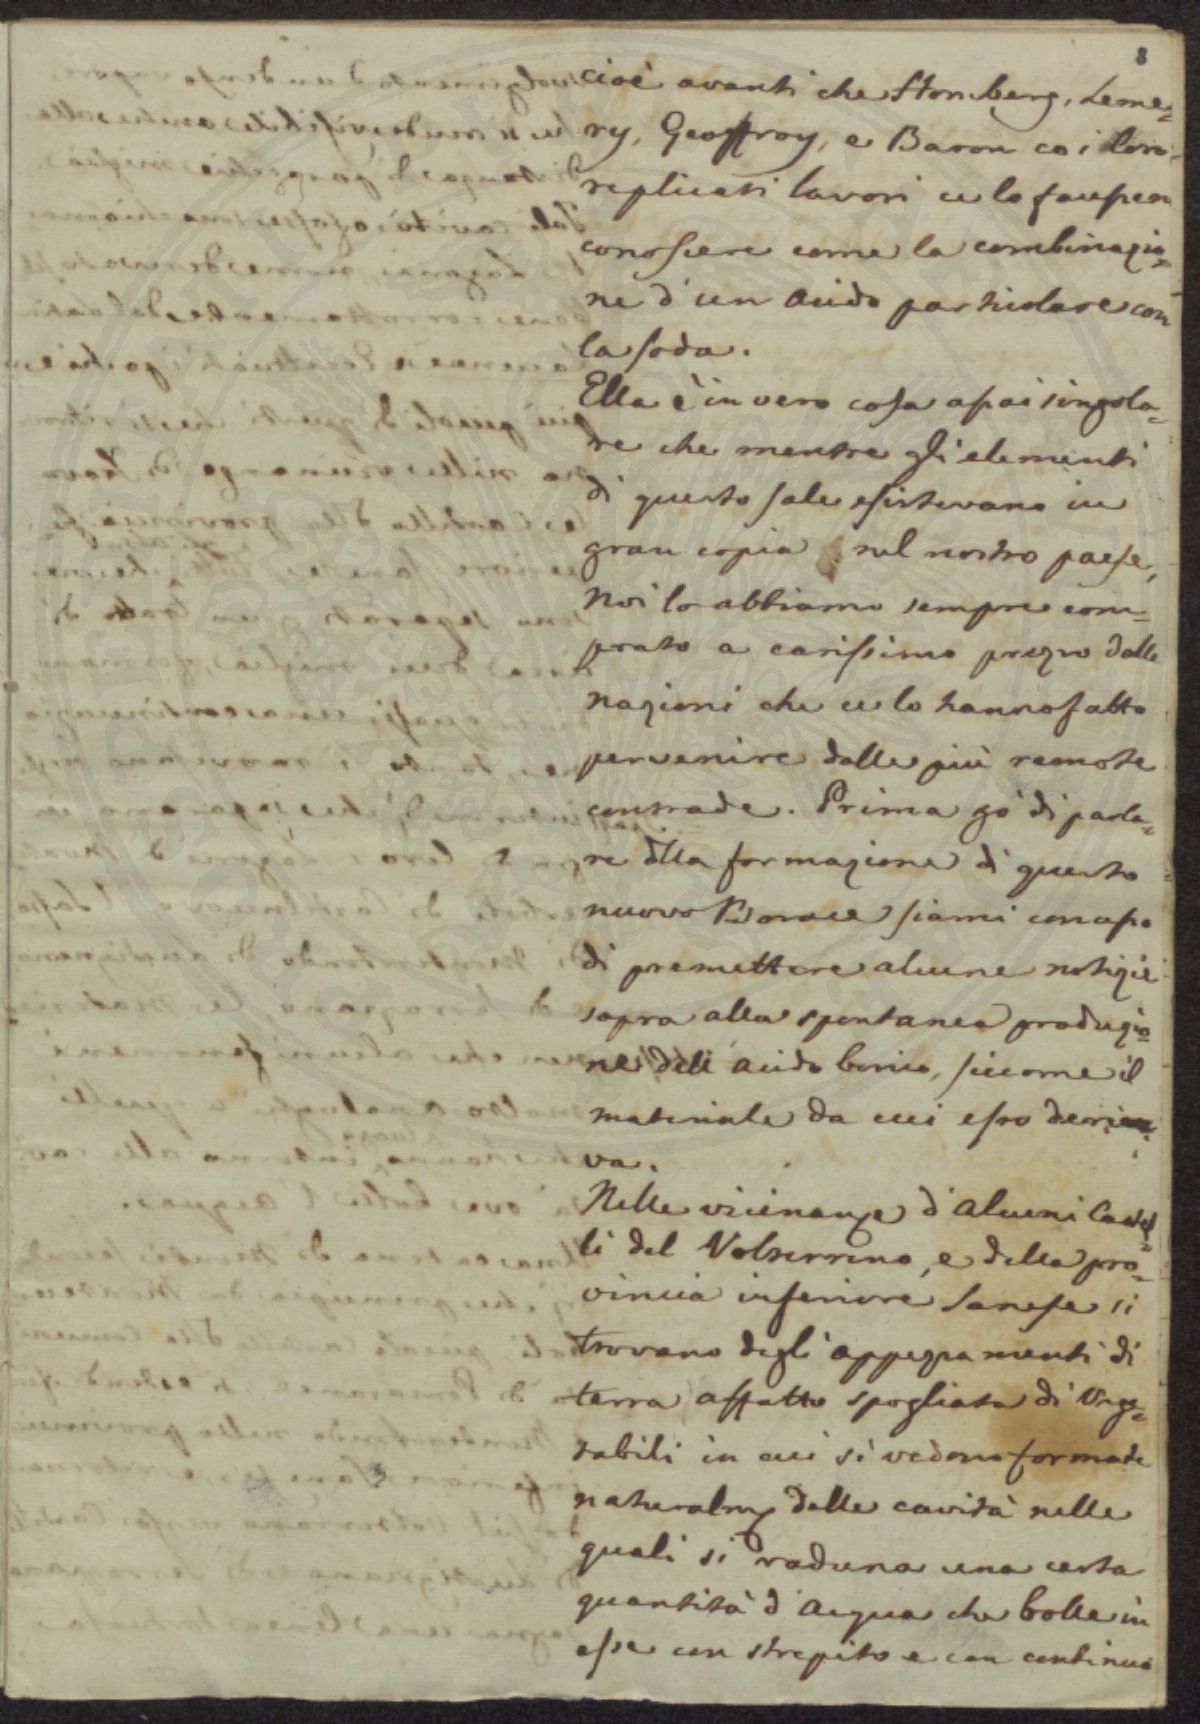 8
cioè avanti che Homberg, Leme=
ry, Geoffroy, e Baron co i loro
replicati lavori ce lo facessero
conoscere come la combinazio=
ne d'un acido particolare con
la soda.
Ella è in vero cosa assai singola=
re che mentre gli elementi
di questo sale esistevano in
gran copia nel nostro paese,
Noi lo abbiamo sempre com=
prato a carissimo prezzo dalle
nazioni che ce lo hanno fatto
pervenire dalle più remote
contrade. Prima però di parla=
re della formazione di questo
nuovo Borace siami concesso
di premettere alcune notizie
sopra alla spontanea produzio=
ne dell'acido borico, siccome il
materiale da cui esso deri=
va.
Nelle vicinanze d'alcuni Castel=
li del Volterrano, e della pro=
vincia inferiore Sanese si
trovano degli appezzamenti di
terra affatto spogliata di Vege=
tabili in cui si vedono formate
naturalm.e delle cavità nelle
quali si raduna una certa
quantità d'acqua che bolle in
esse con strepito e con continuo